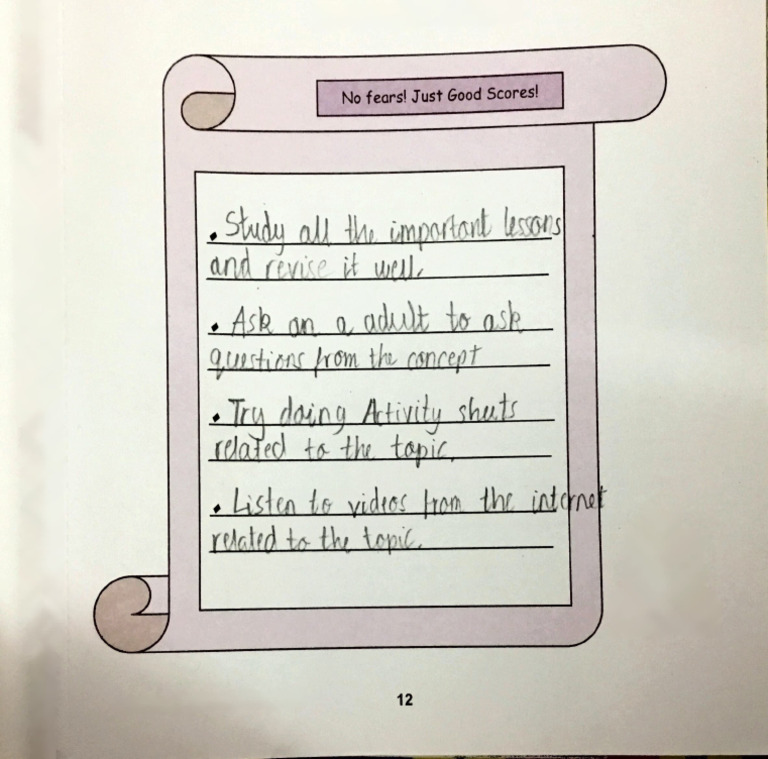 No fears! Just Good Scores!
• Study all the important lessons
and revise it well.
• Ask an a adult to ask
questions from the concept
• Try doing Activity sheets
related to the topic.
• Listen to videos from the internet
related to the topic.
12